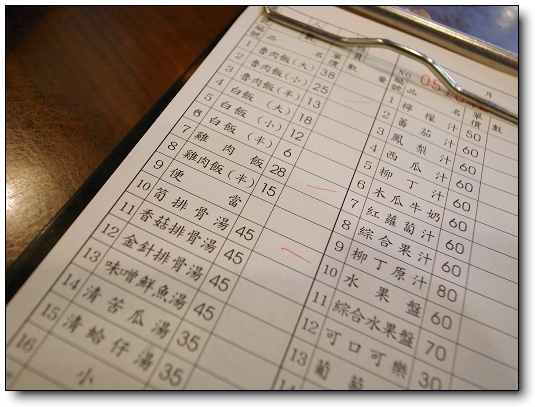 號 品 名 單價 數量
1 魯肉飯(大) 38
2 魯肉飯(小) 25
3 魯肉飯(半) 13
4 白飯(大) 18
5 白飯(小) 12
6 白飯(半) 6
7 雞肉飯 28
8 雞肉飯(半) 15
9 便當
10 筍排骨湯 45
11 香菇排骨湯 45
12 金針排骨湯 45
13 味噌鮮魚湯 45
14 清苦瓜湯 35
15 清蛤仔湯 35
16 小
月
NO
編號 品 名 單價 數
1 檸檬汁 50
2 番茄汁 60
3 鳳梨汁 60
4 西瓜汁 60
5 柳丁汁 60
6 木瓜牛奶 60
7 紅蘿蔔汁 60
8 綜合果汁 60
9 柳丁原汁 80
10 水果盤 60
11 綜合水果盤 70
12 可口可樂 30
13 葡萄